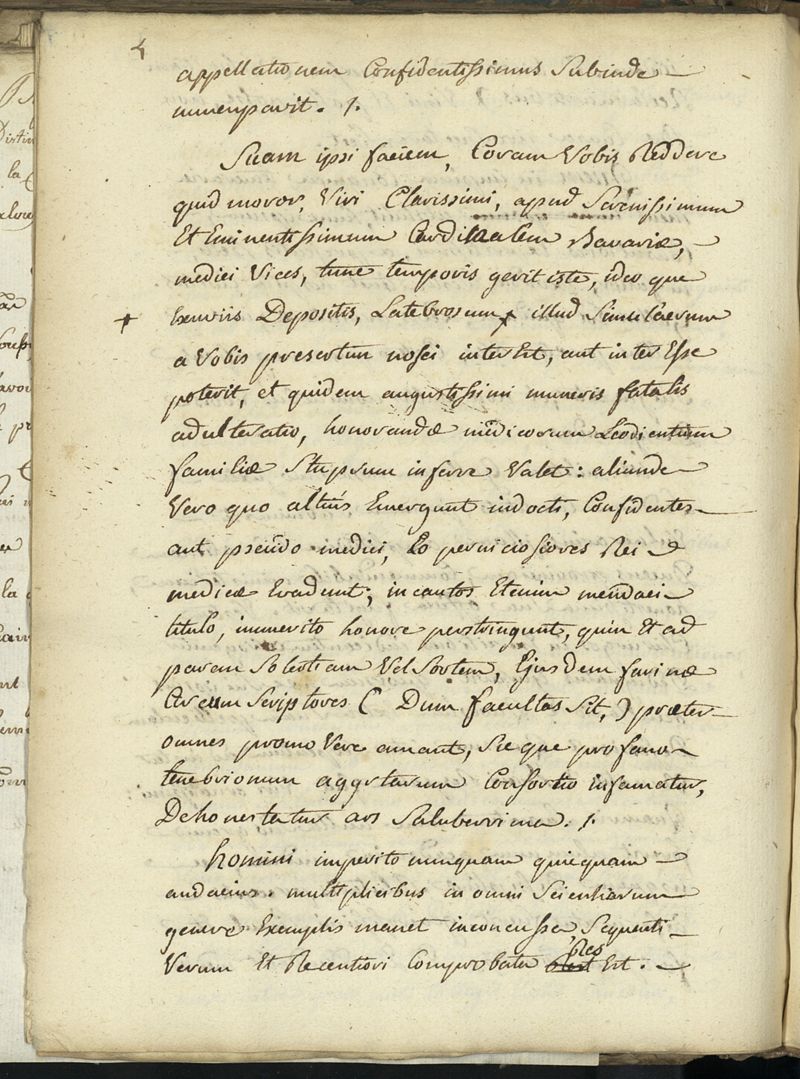 4
appellationem Confidentissimus Subinde
nuncupavit. /.
Suam ipsi faciem, Coram Vobis Reddere
quid moror, Viri Clarissimi, apud Serenissimum
Et Eminentissimum Cardinalem Bavariæ,
medici Vices, tunc temporis gerit iste, ideo que
+ Exuviis Depositis, Latebrosum + illud Simulacrum
a Vobis presertim nosci interest, aut inter Esse
poterit, et quidem augustissimi muneris fatalis
adulteratio, honorandæ medicorum Leodientium
familiæ Stuprum inferre Valet: aliunde
Vero quo altius Emergunt indocti, Confidentes
aut pseudo medici, Eo perniciosiores Rei
medicæ Evadunt; incautos Etenim mendaci
titulo, immerito honore perstringunt, quin Et ad
parem Solertiam Vel Sortem, Ejusdem farinæ
Circum Scriptores ( Dum facultas Sit, ) præter
omnes promovere amant, Sic que profano
tenebrionum agyrtarum Consortio infamatur,
Dehonestatur ars Saluberrima. /.
homini imperito nunquam quicquam
audacius. multiplicibus in omni Scientiarum
genere Exemplis manet inconcussa, Sequenti
Verum Et Recentiori Comprobata Est.